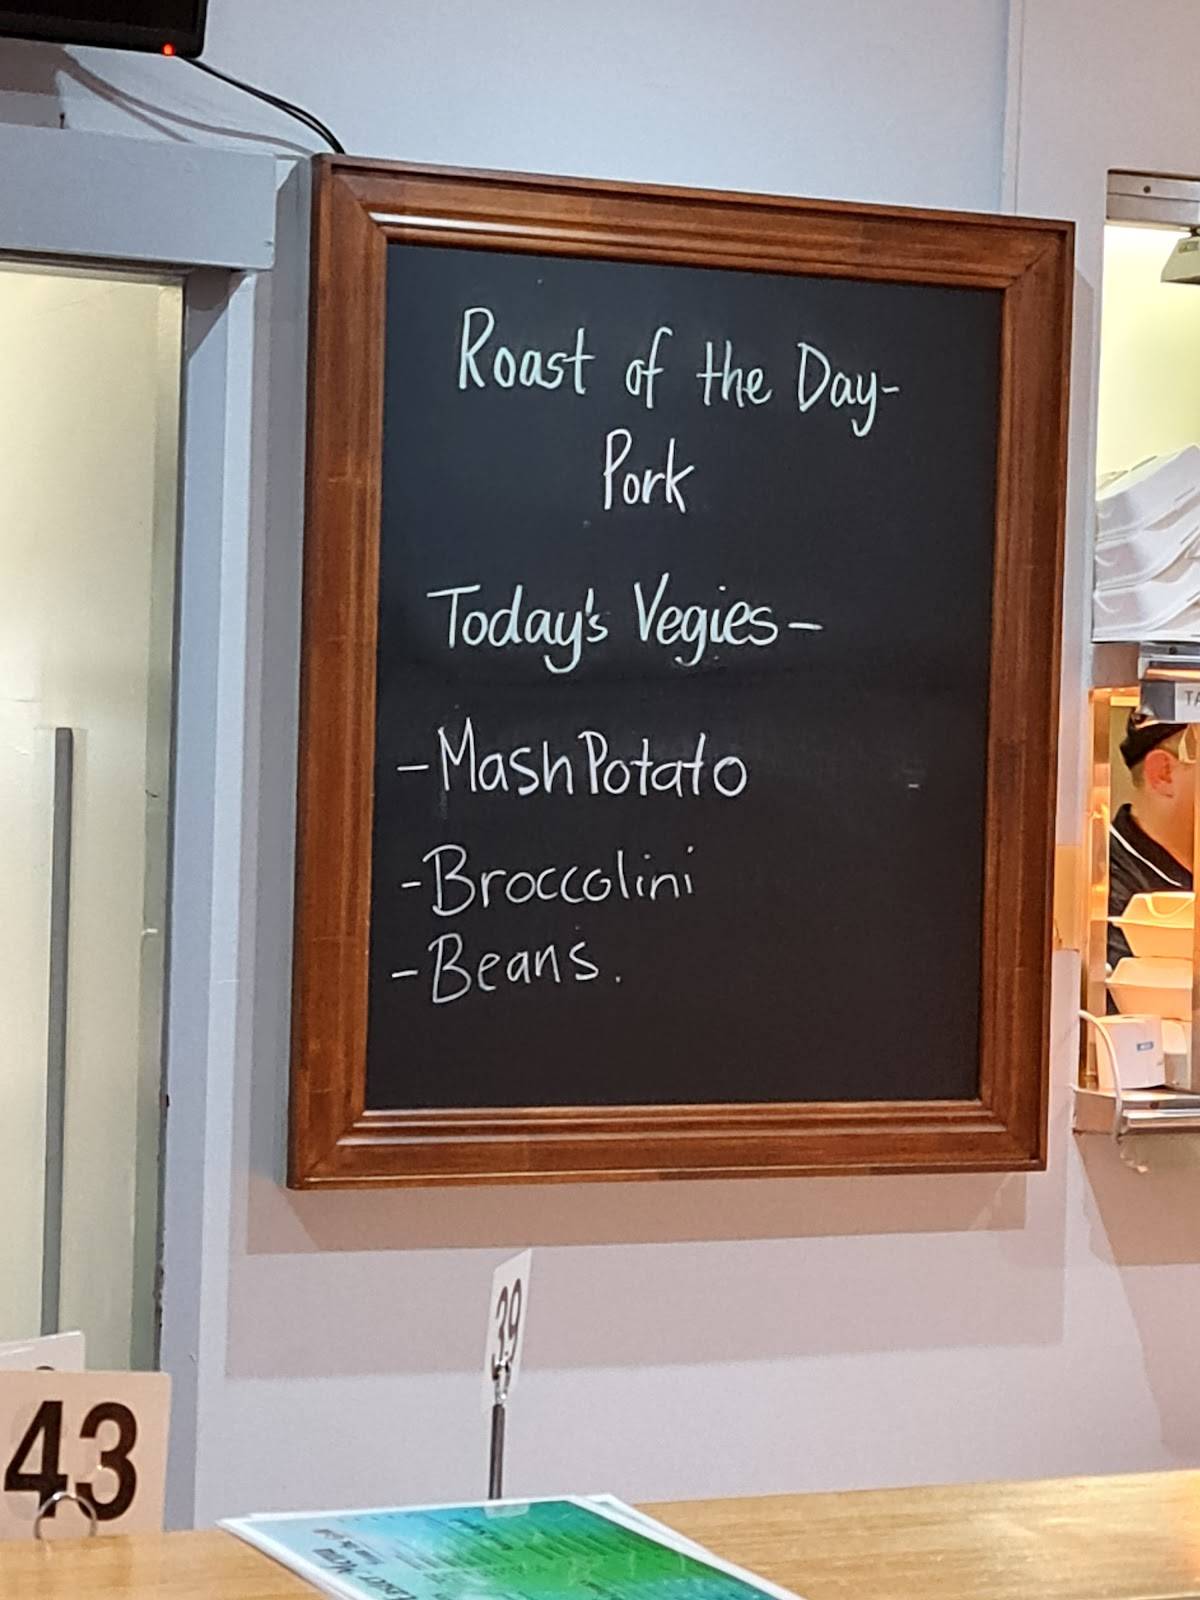 Roast of the Day-
Pork
Today's Vegies-
-Mash Potato
-Broccolini
-Beans.
TA
39
43